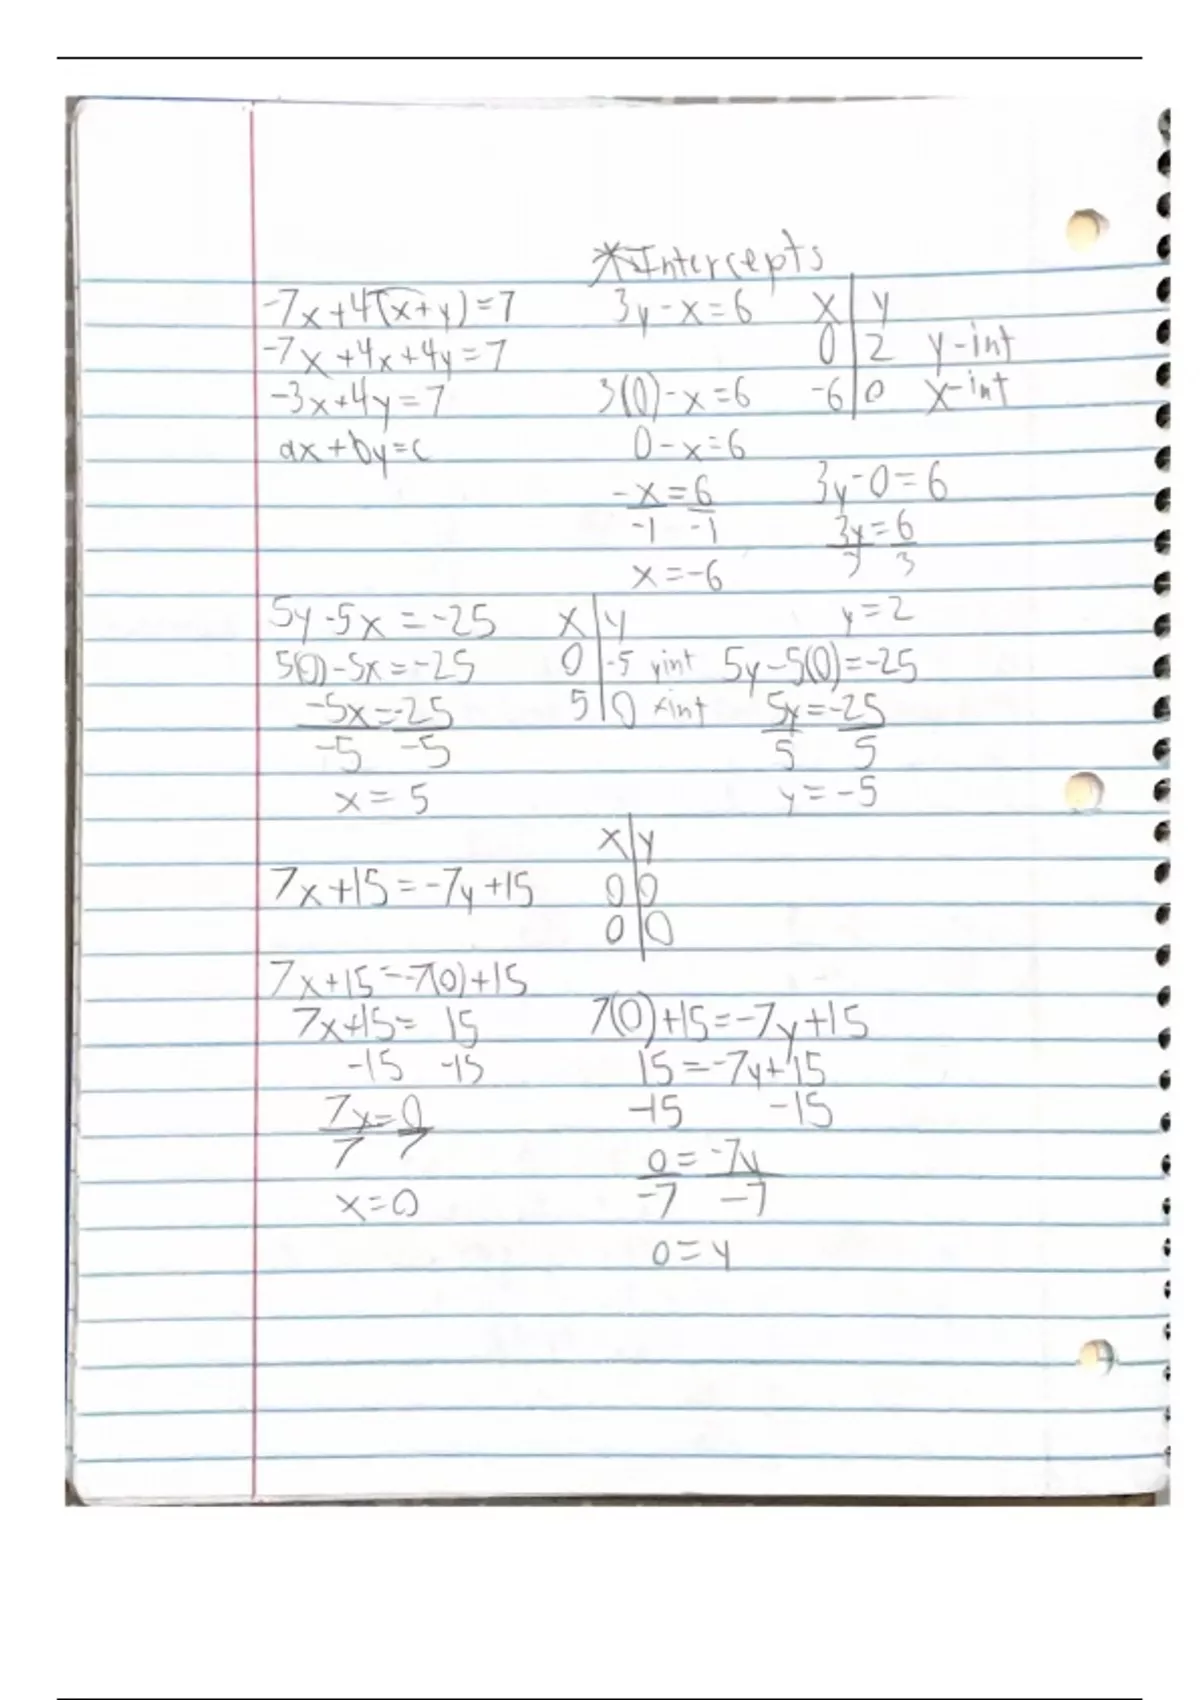 *Intercepts
-7x+4(x+y)=7
-7x+4x+4y=7
-3x+4y=7
ax+by=c
3y-x=6
3(0)-x=6
0-x=6
-x=6
-1 -1
x=-6
x y
0 2 y-int
-6 0 x-int
3y-0=6
3y=6
3 3
y=2
5y-5x=-25
5(0)-5x=-25
-5x=-25
-5 -5
x=5
x y
0 -5 yint
5 0 xint
5y-5(0)=-25
5y=-25
5 5
y=-5
7x+15=-7y+15
x y
0 0
0 0
7x+15=-7(0)+15
7x+15= 15
-15 -15
7x=0
7 7
x=0
7(0)+15=-7y+15
15=-7y+15
-15 -15
0=-7y
-7 -7
0=y